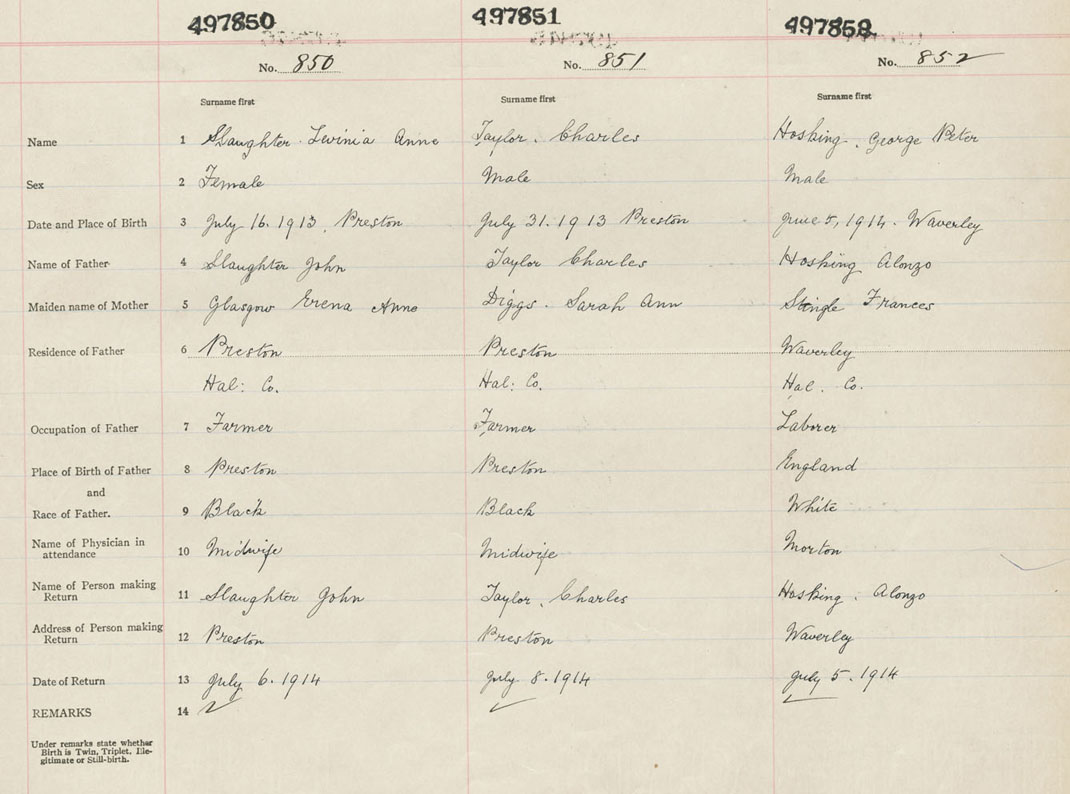 497850 497851 497852
No. 850 No. 851 No. 852
Surname first Surname first Surname first
Name 1 Slaughter. Levinia Anne Taylor. Charles Hosking. George Peter
Sex 2 Female Male Male
Date and Place of Birth 3 July 16. 1913. Preston July 31. 1913 Preston June 5, 1914. Waverley
Name of Father 4 Slaughter John Taylor Charles Hosking Alonzo
Maiden name of Mother 5 Glasgow Erena Anne Diggs. Sarah Ann Frances
Residence of Father 6 Preston Preston Waverley
Hal: Co. Hal: Co. Hal. Co.
Occupation of Father 7 Farmer Farmer Laborer
Place of Birth of Father 8 Preston Preston England
and
Race of Father. 9 Black Black White
Name of Physician in
attendance 10 Midwife Midwife Morton
Name of Person making
Return 11 Slaughter John Taylor. Charles Hosking. Alonzo
Address of Person making
Return 12 Preston Preston Waverley
Date of Return 13 July 6. 1914 July 8. 1914 July 5. 1914
REMARKS 14
Under remarks state whether
Birth is Twin, Triplet, Ille-
gitimate or Still-birth.